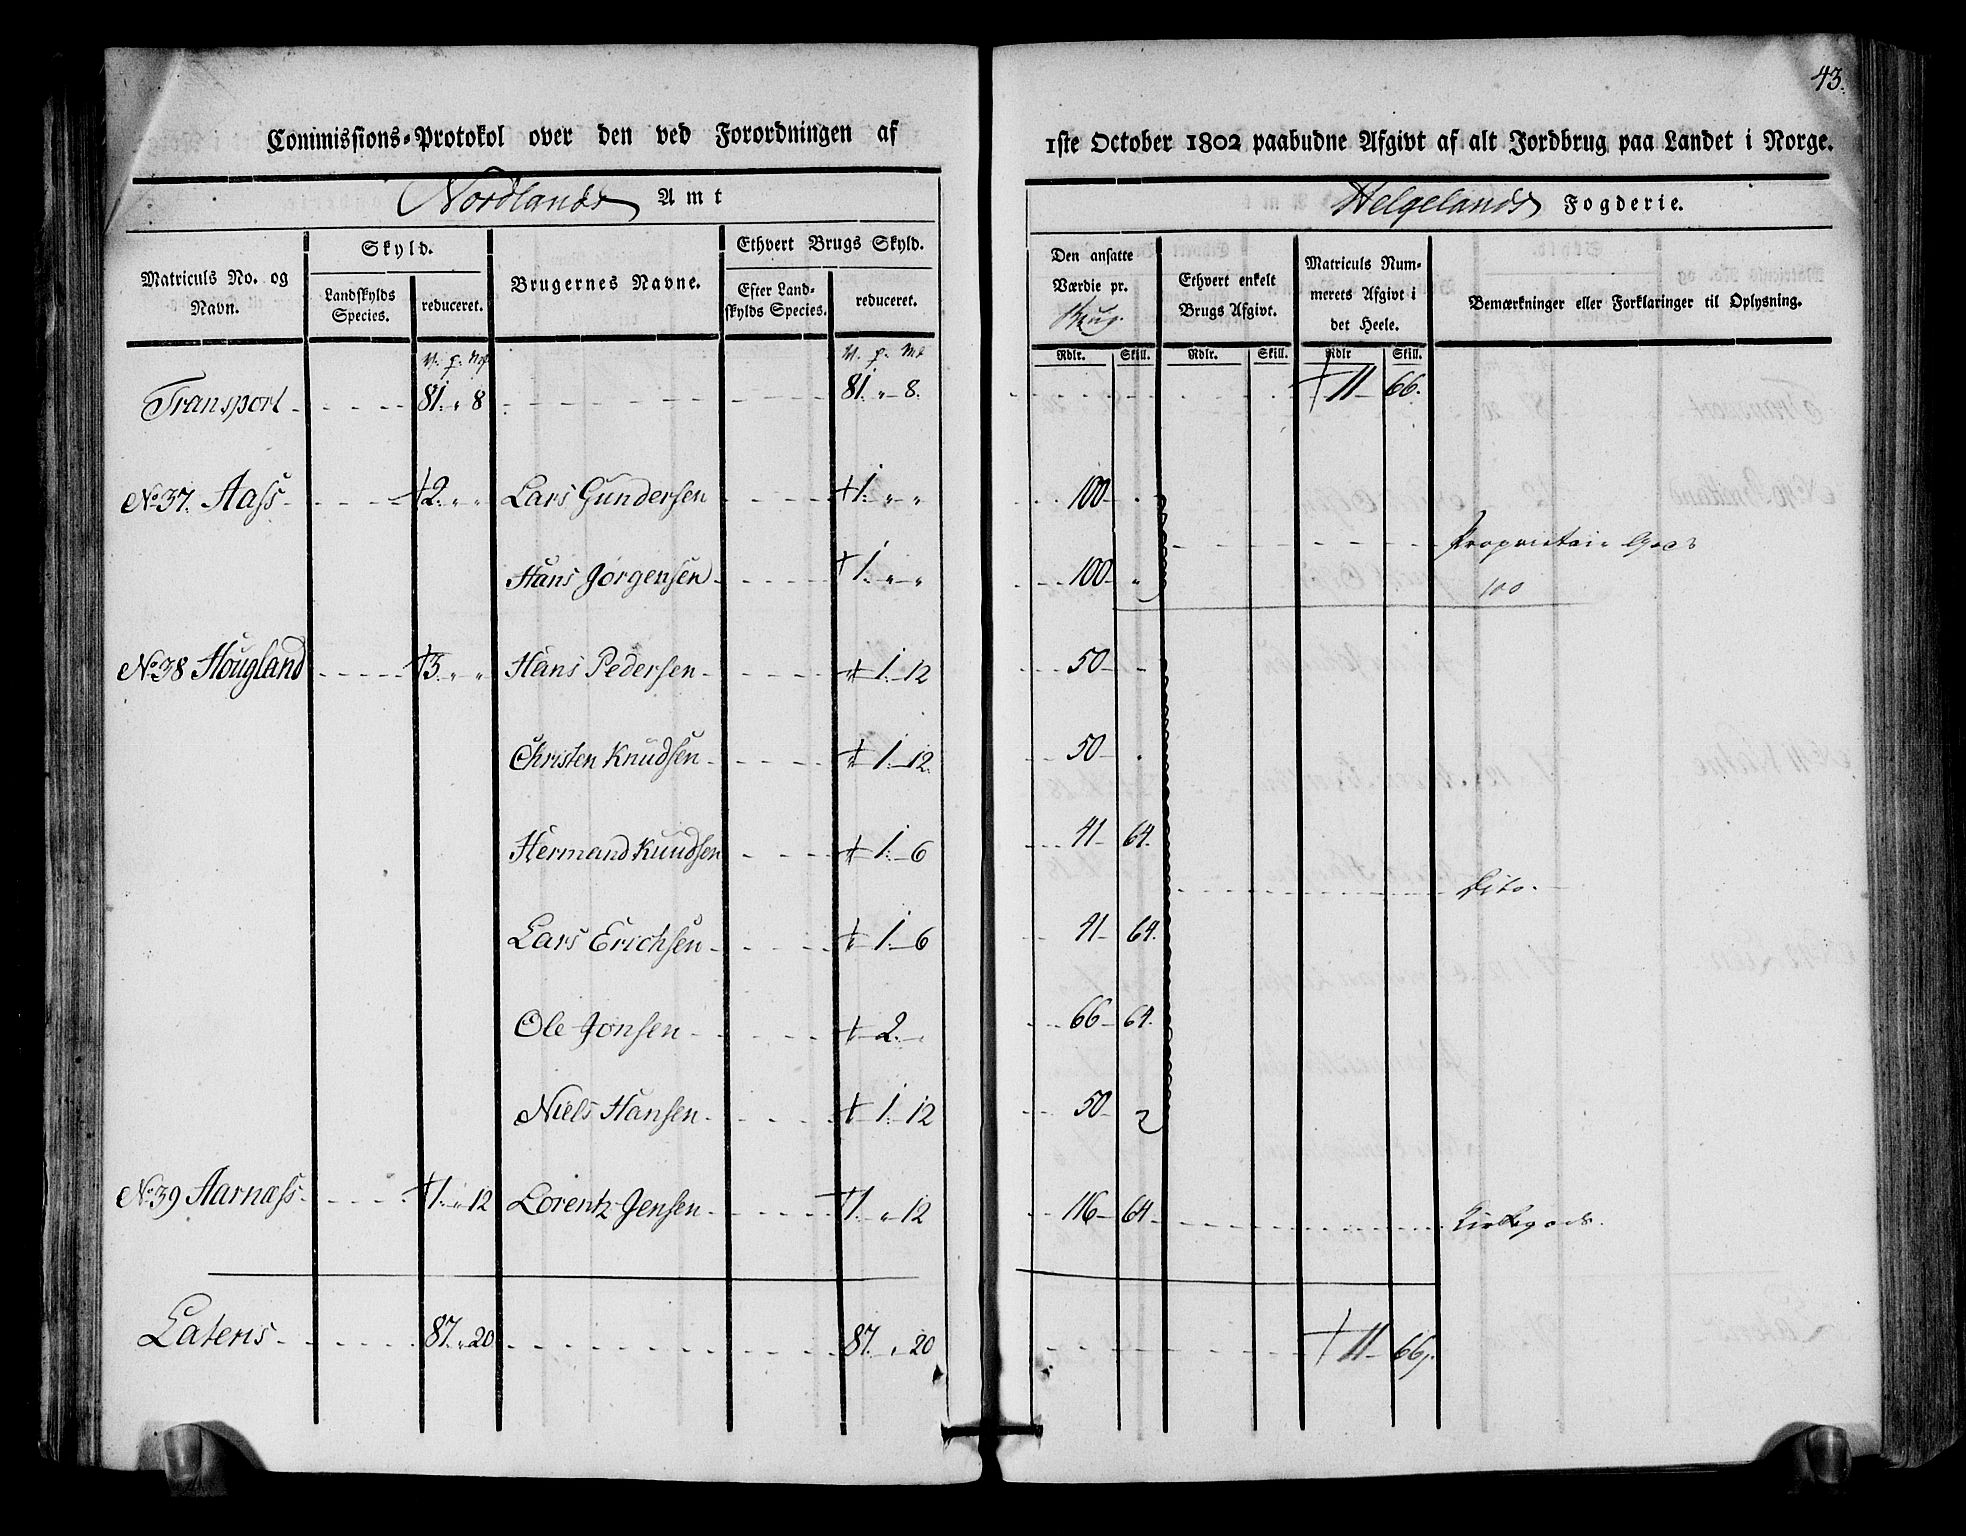 43.
Commissions-Protokol over den ved Forordningen af 1ste October 1802 paabudne Afgivt af alt Jordbrug paa Landet i Norge.
Nordlands Amt
Helgelands Fogderie.
Matriculs No. og Navn.
Skyld.
Landskylds Species.
reduceret.
Brugernes Navne.
Ethvert Brugs Skyld.
Efter Landskylds Species.
reduceret.
Den ansatte Værdie pr. Brug.
Ethvert enkelt Brugs Afgivt.
Matriculs Nummerets Afgivt i det Heele.
Bemærkninger eller Forklaringer til Oplysning.
Rdlr. Skill. Rdlr. Skill. Rdlr Skill.
Transport 81. " 8 81. " 8. 11 66.
No. 37. Aass 2. " " Lars Gundersen 1. " " 100
Hans Jørgensen 1. " " 100 "
Proprietair Gods
100
No. 38 Hougland 3. " " Hans Pedersen 1. 12 50
Christen Knudsen 1. 12. 50
Hermand Knudsen 1. 6 41 64.
Dito.
Lars Erichsen 1. 6 41 64.
Ole Jonsen 2. 66 64.
Niels Hansen 1. 12 50
No. 39 Aarnæss 1. " 12 Lorentz Jensen 1. " 12 116 64 Kirkegods.
Lateris 87. " 20 87. " 20 11 66.